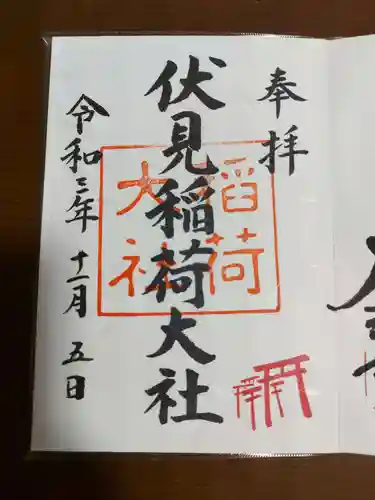 奉拝
伏見稲荷大社
稲荷
大社
令和三年 十一月 五日